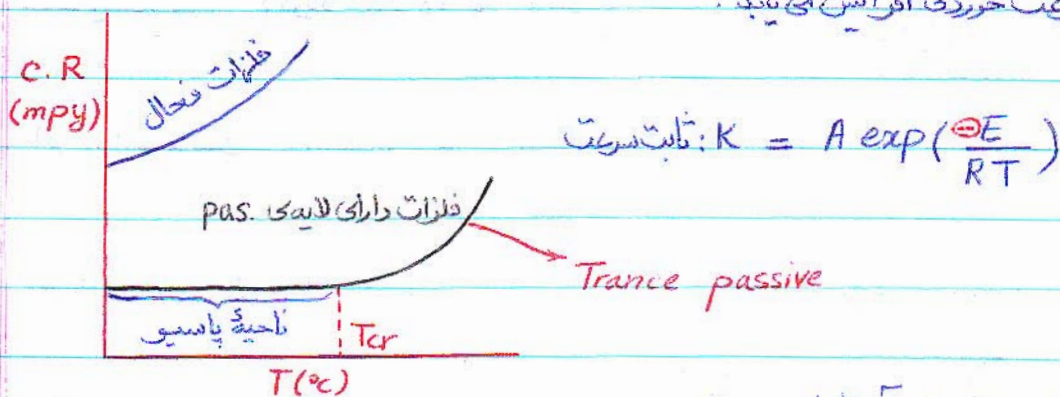 سرعت خوردگی افزایش می‌یابد.
C.R
(mpy)
فلزات فعال
ثابت سرعت: K = A exp(-E/RT)
فلزات دارای لایه‌ی pas.
Trance passive
ناحیهٔ پاسیو
Tcr
T(°C)